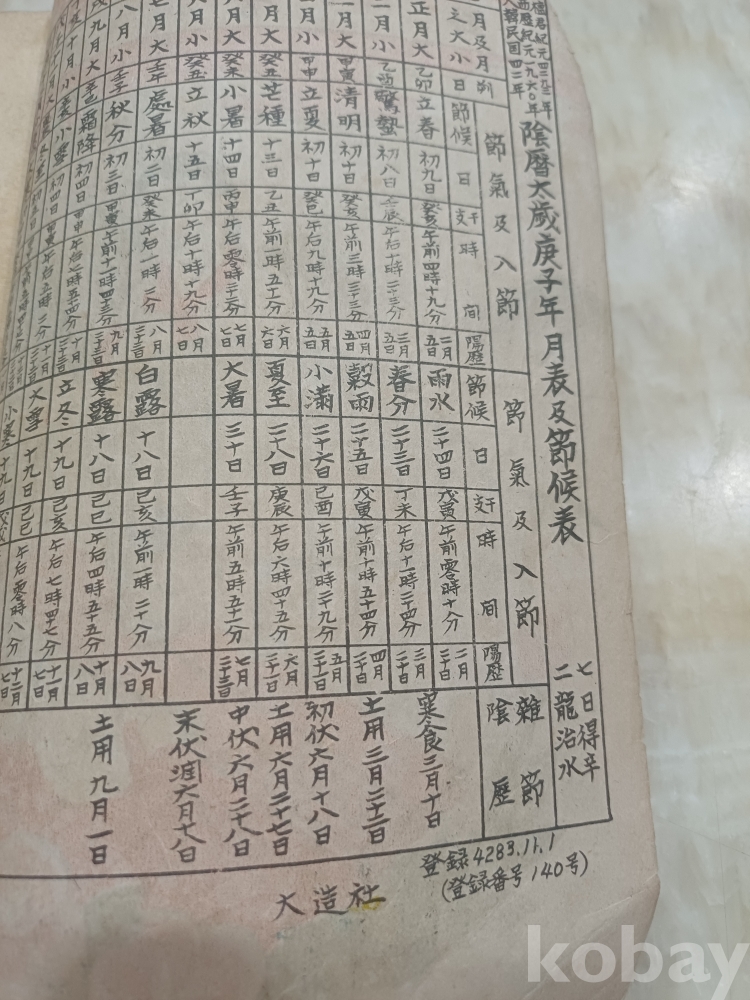 檀君紀元四二九三年
西歷紀元一九六〇年
大韓民国四二年
陰曆太歲庚子年 月表及節候表
七日得辛
二龍治水
節氣及入節 節氣及入節 雜節
月及月之大小 朔日 節候 日 干支 時間 陽歷 節候 日 干支 時間 陽歷 陰歷
正月大 乙卯 立春 初九日 癸亥 午前四時十九分 二月五日 雨水 二十四日 戊寅 午前零時十分 二月二十日 寒食三月十日
二月小 乙酉 驚蟄 初八日 壬辰 午后十時三十三分 三月五日 春分 二十三日 丁未 午后十一時三十四分 三月二十日 土用三月二十二日
一月大 甲寅 清明 初十日 癸亥 午前三時三十三分 四月五日 穀雨 二十五日 戊寅 午前十時五十四分 四月二十日 初伏六月十八日
月小 甲申 立夏 初十日 癸巳 午后九時十九分 五月五日 小滿 二十六日 己酉 午前十時二十九分 五月二十一日 土用六月二十七日
月大 癸丑 芒種 十三日 乙丑 午前一時五十分 六月六日 夏至 二十八日 庚辰 午后六時四十五分 六月二十一日 中伏六月二十八日
月大 癸未 小暑 十四日 丙申 午后零時三十三分 七月七日 大暑 三十日 壬子 午前五時五十分 七月二十三日 末伏潤六月十八日
月小 癸丑 立秋 十五日 丁卯 午后十時十九分 八月七日
七月大 壬午 處暑 初二日 癸未 午后一時三分 八月二十三日 白露 十八日 己亥 午前一時二十分 九月八日 土用九月一日
八月小 壬子 秋分 初三日 甲寅 午前十一時四十三分 九月二十三日 寒露 十八日 己巳 午后四時五十五分 十月八日
九月大 辛巳 霜降 初四日 甲申 午后七時五十四分 十月二十三日 立冬 十九日 己亥 午后七時四十七分 十一月七日
十月小 小雪 初四日 午后五時三分 大雪 十九日 己巳 午后零時八分 十二月七日
小寒 十九日
登録4283.11.1
(登録番号140号)
大造社
kobay